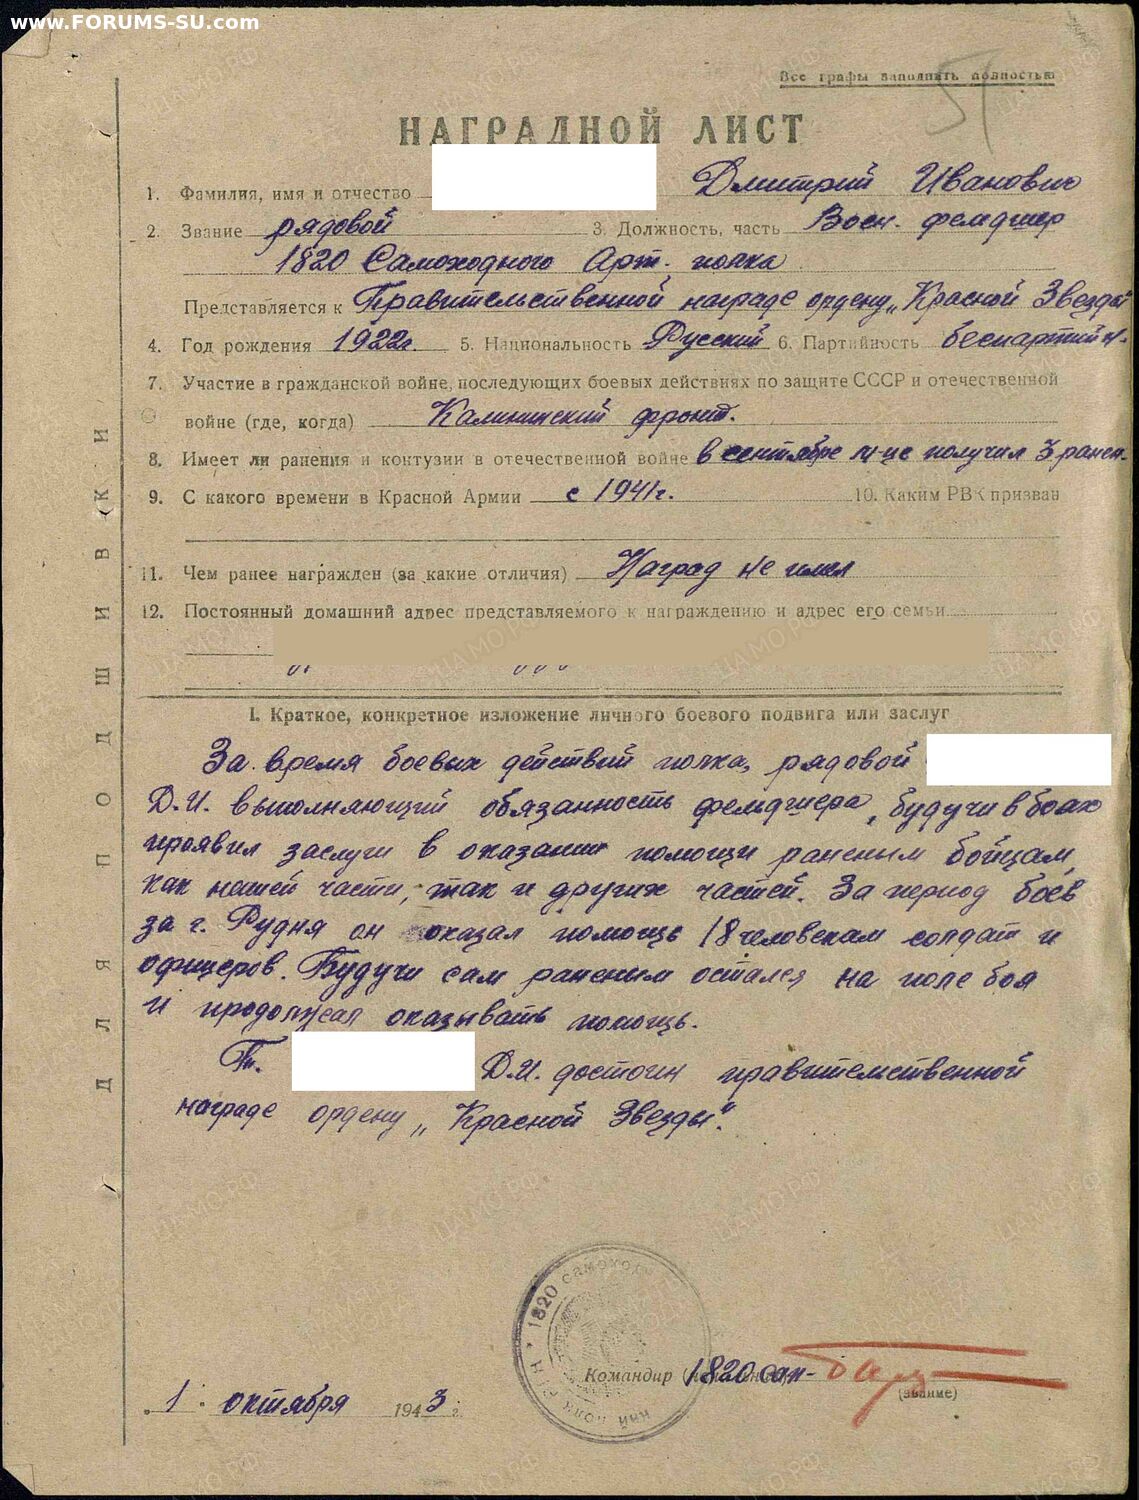 www.FORUMS-SU.com
Все графы заполнять полностью
51
НАГРАДНОЙ ЛИСТ
1. Фамилия, имя и отчество Дмитрий Иванович
2. Звание рядовой 3. Должность, часть Воен. фельдшер
1820 Самоходного Арт. полка
Представляется к Правительственной награде ордену „Красной Звезды"
4. Год рождения 1922г. 5. Национальность Русский 6. Партийность беспартийн.
7. Участие в гражданской войне, последующих боевых действиях по защите СССР и отечественной
войне (где, когда) Калининский фронт.
8. Имеет ли ранения и контузии в отечественной войне в сентябре м-це получил 3 ранен.
9. С какого времени в Красной Армии с 1941г. 10. Каким РВК призван
11. Чем ранее награжден (за какие отличия) Наград не имел
12. Постоянный домашний адрес представляемого к награждению и адрес его семьи
I. Краткое, конкретное изложение личного боевого подвига или заслуг
За время боевых действий полка, рядовой
Д.И. выполняющий обязанность фельдшера, будучи в боях
проявил заслуги в оказании помощи раненым бойцам,
как нашей части, так и других частей. За период боев
за г. Рудня он оказал помощь 18 человекам солдат и
офицеров. Будучи сам раненим остался на поле боя
и продолжал оказывать помощь.
Д.И. достоин правительственной
награде ордену „Красной Звезды".
1820 самоход
Командир 1820 сап-
(звание)
1 октября 1943 г.
ДЛЯ ПОДШИВКИ